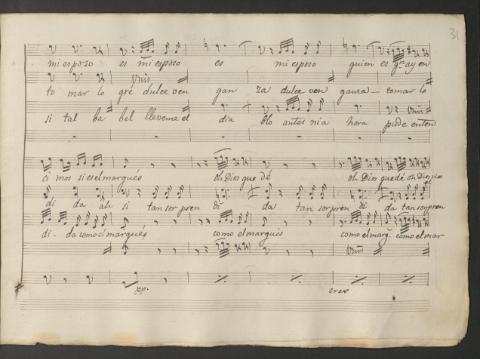 31
mi esposo es mi esposo es mi esposo quien es q.e ay en
Unis
to mar lo gré dulce ven gan za dulce ven ganza tomar lo
si tal ba bel lleveme el dia blo antes nia hora pude enten
ci mos si es el marqués oh Dios que dé oh Dios que dé oh Dios que
di da ah si tan sor pren di da tan sorpren di da tan sorpren
di da como el marqués como el marqués como el marq.s como el mar
Unis
cres